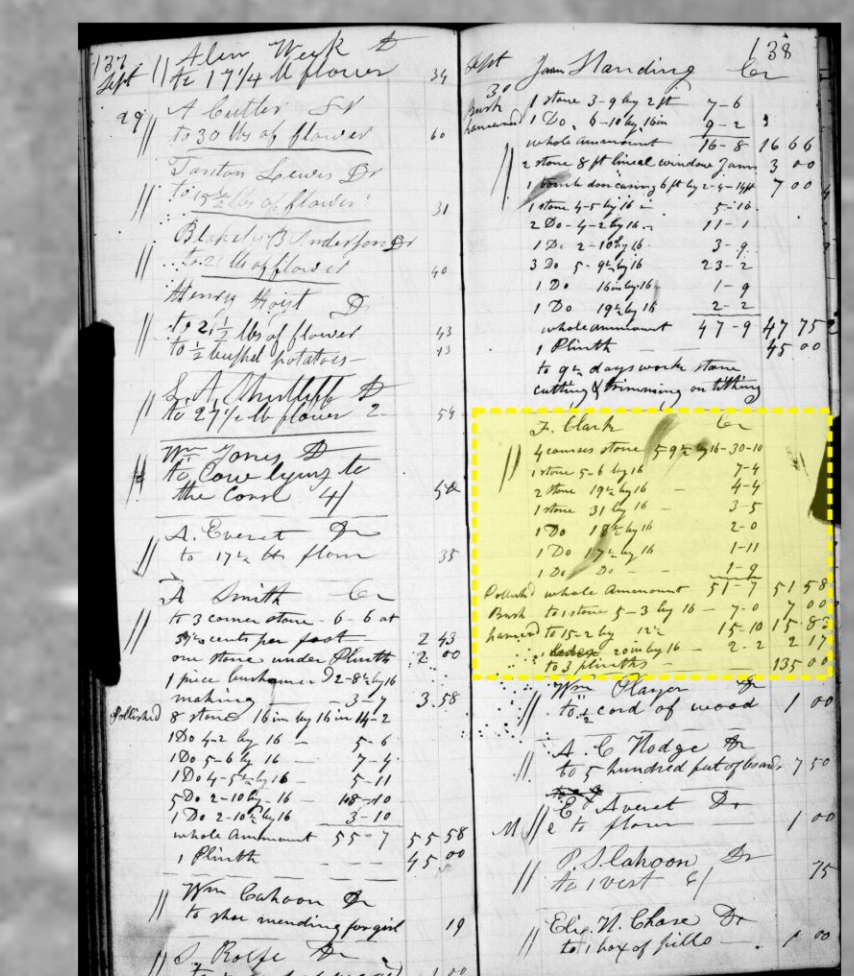 137
Sept // Alen Week D
to 17 1/4 lb flower 34
29 // A Cutler Sr
to 30 lbs of flower 60
// Tarlton Lewis Dr
to 15 1/2 lbs of flower 31
// Blakely B Anderson Dr
to 20 lbs of flower 40
// Henry Hoyt D
to 21 1/2 lbs of flower 43
to 1/2 bushel potatoes 13
// L. A. Shurtliff D
to 27 1/2 lb flower 2 54
// Wm Jones D
to Cow lying to
the Corrl 4/ 50
// A. Everet Dr
to 17 1/2 lbs flour 35
// A Smith Cr
to 3 corner stone - 6 - 6 at
37 1/2 cents per foot 2 43
one stone under Plinth 2.00
1 piece bushamerd 2-8 1/2 by 16
making 3-7 3.58
Pollished 8 stone 16 in by 16 in 14-2
1 Do 4-2 by 16 - 5-6
1 Do 5-6 by 16 - 7-4
1 Do 4-5 1/2 by 16 - 5-11
5 Do 2-10 by 16 - 18-10
1 Do 2-10 1/2 by 16 3-10
whole Ammount 55-7 55 58
1 Plinth - - - 45.00
// Wm Cahoon Dr
to shoe mending for girl 19
// S. Rolfe Dr
138
Sept James Standing Cr
30
Bush hamered 1 stone 3-9 by 2 ft 7-6
1 Do. 6-10 by 16 in 9-2
whole ammount 16-8 16 66
// 2 stone 8 ft lineal window Jams 3 00
1 bomb door casing 6 ft by 2-4-14 ft 7 00
1 stone 4-5 by 16 5-10
2 Do - 4-2 by 16 - 11-1
1 Do 2-10 by 16 - 3-9
3 Do 5-9 1/2 by 16 23-2
1 Do 16 in by 16 1-9
1 Do 19 1/2 by 16 2-2
whole ammount 47-9 47 75
1 Plinth - - 45 00
to 9 1/2 days work stone
cutting & trimming on tithing
F. Clark Cr
// 4 courses stone 5-9 1/2 by 16 - 30-10
1 stone 5-6 by 16 7-4
2 stone 19 1/2 by 16 - 4-4
1 stone 31 by 16 - 3-5
1 Do 18 1/2 by 16 2-0
1 Do 17 1/2 by 16 1-11
1 Do Do - 1-9
Pollishd whole Ammount 51-7 51 58
Bush to 1 stone 5-3 by 16 - 7-0 7 00
hamred to 15-2 by 12 1/2 15-10 15-83
20 in by 16 - 2-2 2 17
to 3 plinths - 135 00
// Wm Player Dr
to 1/2 cord of wood 1 00
// A. C Hodge Dr
to 5 hundred feet of boards 7 50
M // E Averet Dr
to flour 1 00
// P. S. Cahoon Dr
to 1 vest 6/ 75
// Eliz. N. Chase Dr
to 1 box of pills - 1 00